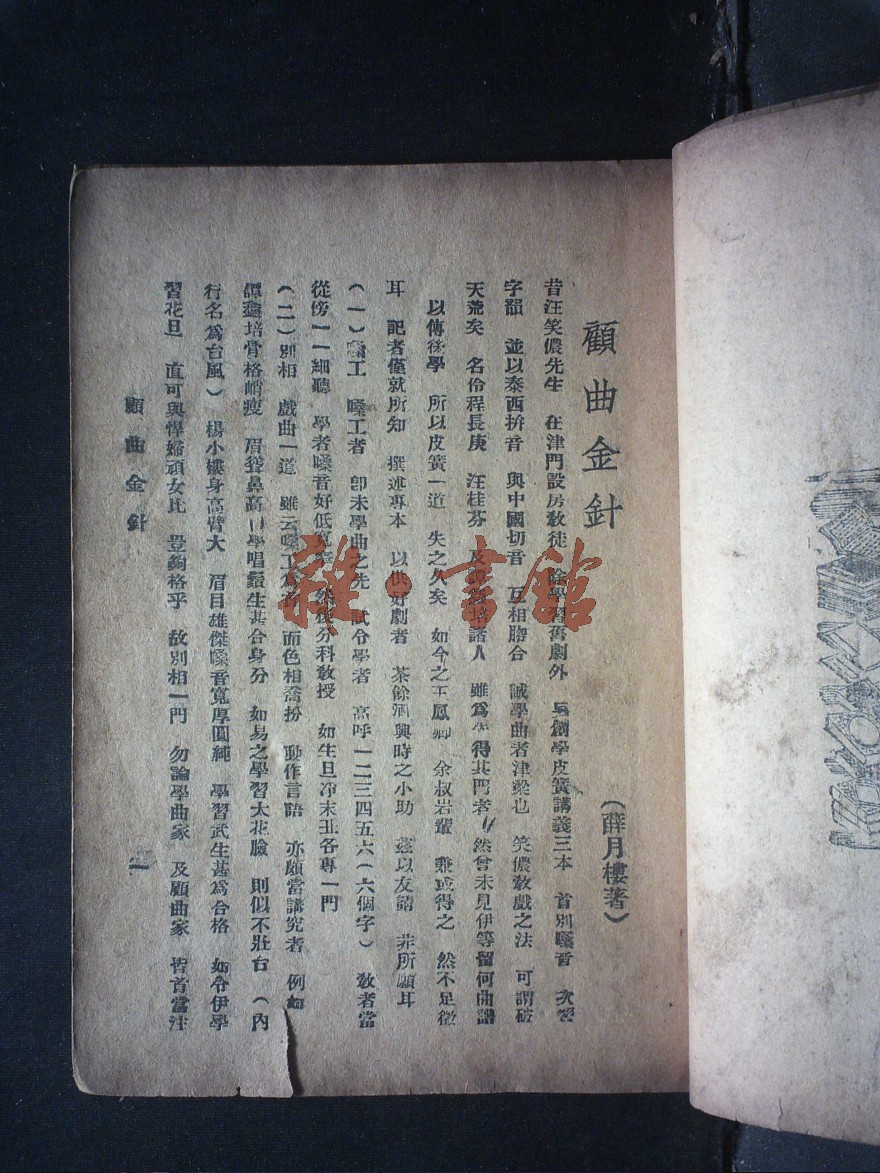 顧曲金針
(薛月樓著)
昔汪笑儂先生 在津門設房敎徒 除學習舊劇外 另創學皮簧講義三本 首別嗓音 次習
字韻 並以泰西拚音 與中國切音 互相膠合 誠學曲者津梁也 笑儂敎戲之法 可謂破
天荒矣 名伶程長庚 汪桂芬 及譚鑫培諸人 雖爲 得其門者 然曾未見伊等留何曲譜
以傳後學 所以皮簧一道 失之久矣 如今之王鳳卿 余叔岩輩 兼或得之 然不足徵
耳 記者僅就所知 撰述專本 以供好劇者 茶餘酒興時之小助 玆以友請 非所願耳
(一)嗓工 嗓工者 卽未學曲之先 試令學者 高呼一二三四五六(六個字) 敎者當
從傍一一細聽 學者嗓音好低寬窄 然後分科敎授 如生旦净末丑各專一門
(二)別相 戲曲一道 雖云嗓工爲首 而色相喬扮 動作言語 亦頗當講究者 例如
譚鑫培骨格峭瘦 眉聳鼻高 學唱鬚生甚合身分 如易之學習大花臉 則似不壯台 (內
行名爲台風) 楊小樓身高臂大 眉目雄傑嗓音寬厚圓純 學習武生甚爲合格 如令伊學
習花旦 直可與悍婦頑女比 豈夠格乎 故別相一門 勿論學曲家 及顧曲家 皆首當注
顧曲金針
一
雜·書館